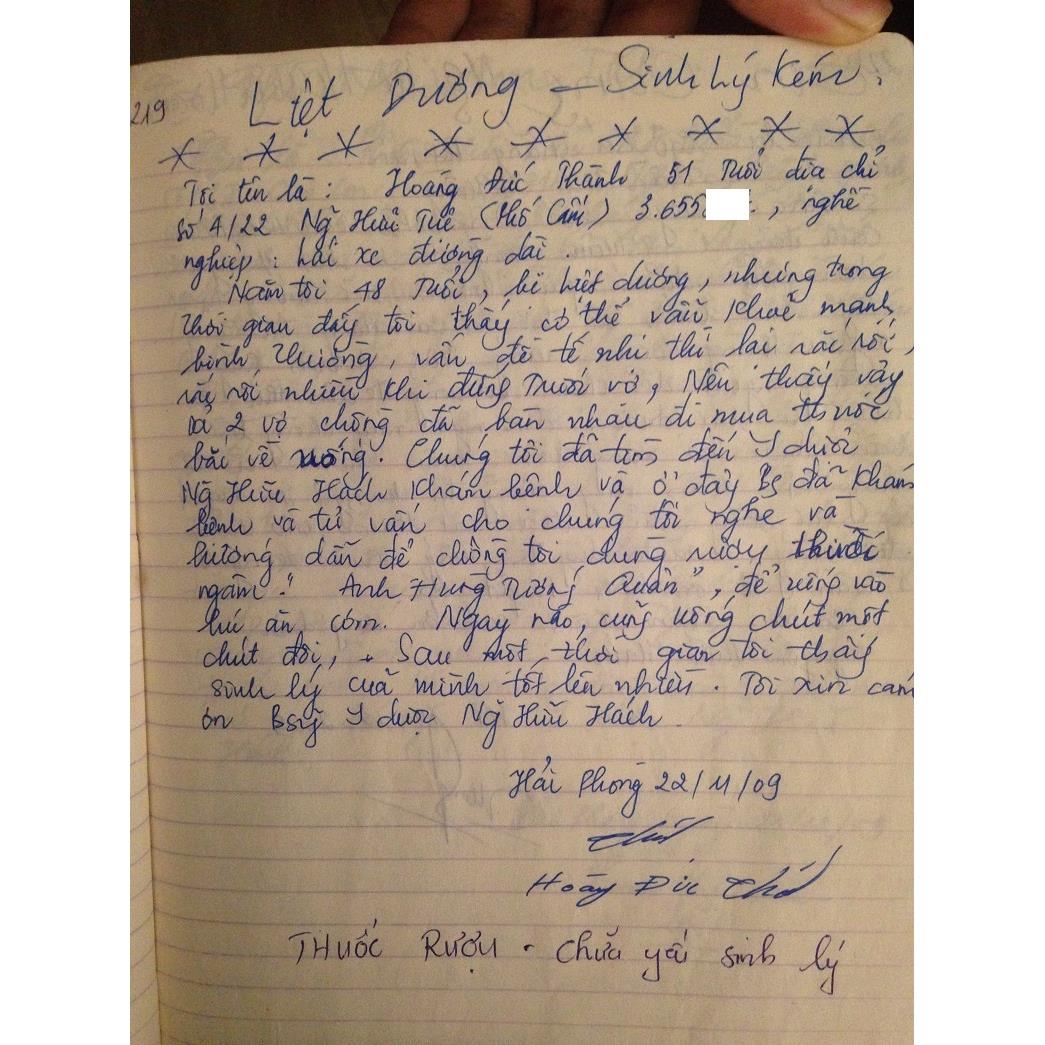 219
Liệt Dương - Sinh Lý Kém.
Tôi tên là : Hoàng Đức Thành 51 Tuổi địa chỉ
Số 4/22 Ng Hữu Tuệ (Phố Cấm) 3.655 , nghề
nghiệp : lái xe đường dài .
Năm tôi 48 Tuổi, bị liệt dương, nhưng trong
thời gian đấy tôi thấy cơ thể vẫn khoẻ mạnh
bình thường, vấn đề tế nhị thì lại rắc rối,
rắc rối nhiều khi đứng trước vợ, Nên thấy vậy
cả 2 vợ chồng đã bàn nhau đi mua thuốc
bắc về uống. Chúng tôi đã tìm đến Y dược
Ng Hữu Hách khám bệnh và ở đây Bs đã khám
bệnh và tư vấn cho chúng tôi nghe và
hướng dẫn để chồng tôi dùng rượu thuốc
ngâm " Anh Hùng Tương Quân ", để uống vào
lúc ăn cơm. Ngày nào, cũng uống chút một
chút đôi, Sau một thời gian tôi thấy
sinh lý của mình tốt lên nhiều. Tôi xin cám
ơn Bsỹ Y dược Ng Hữu Hách.
Hải Phòng 22/11/09
Hoàng Đức
THuốc RượU . chữa yếu sinh lý